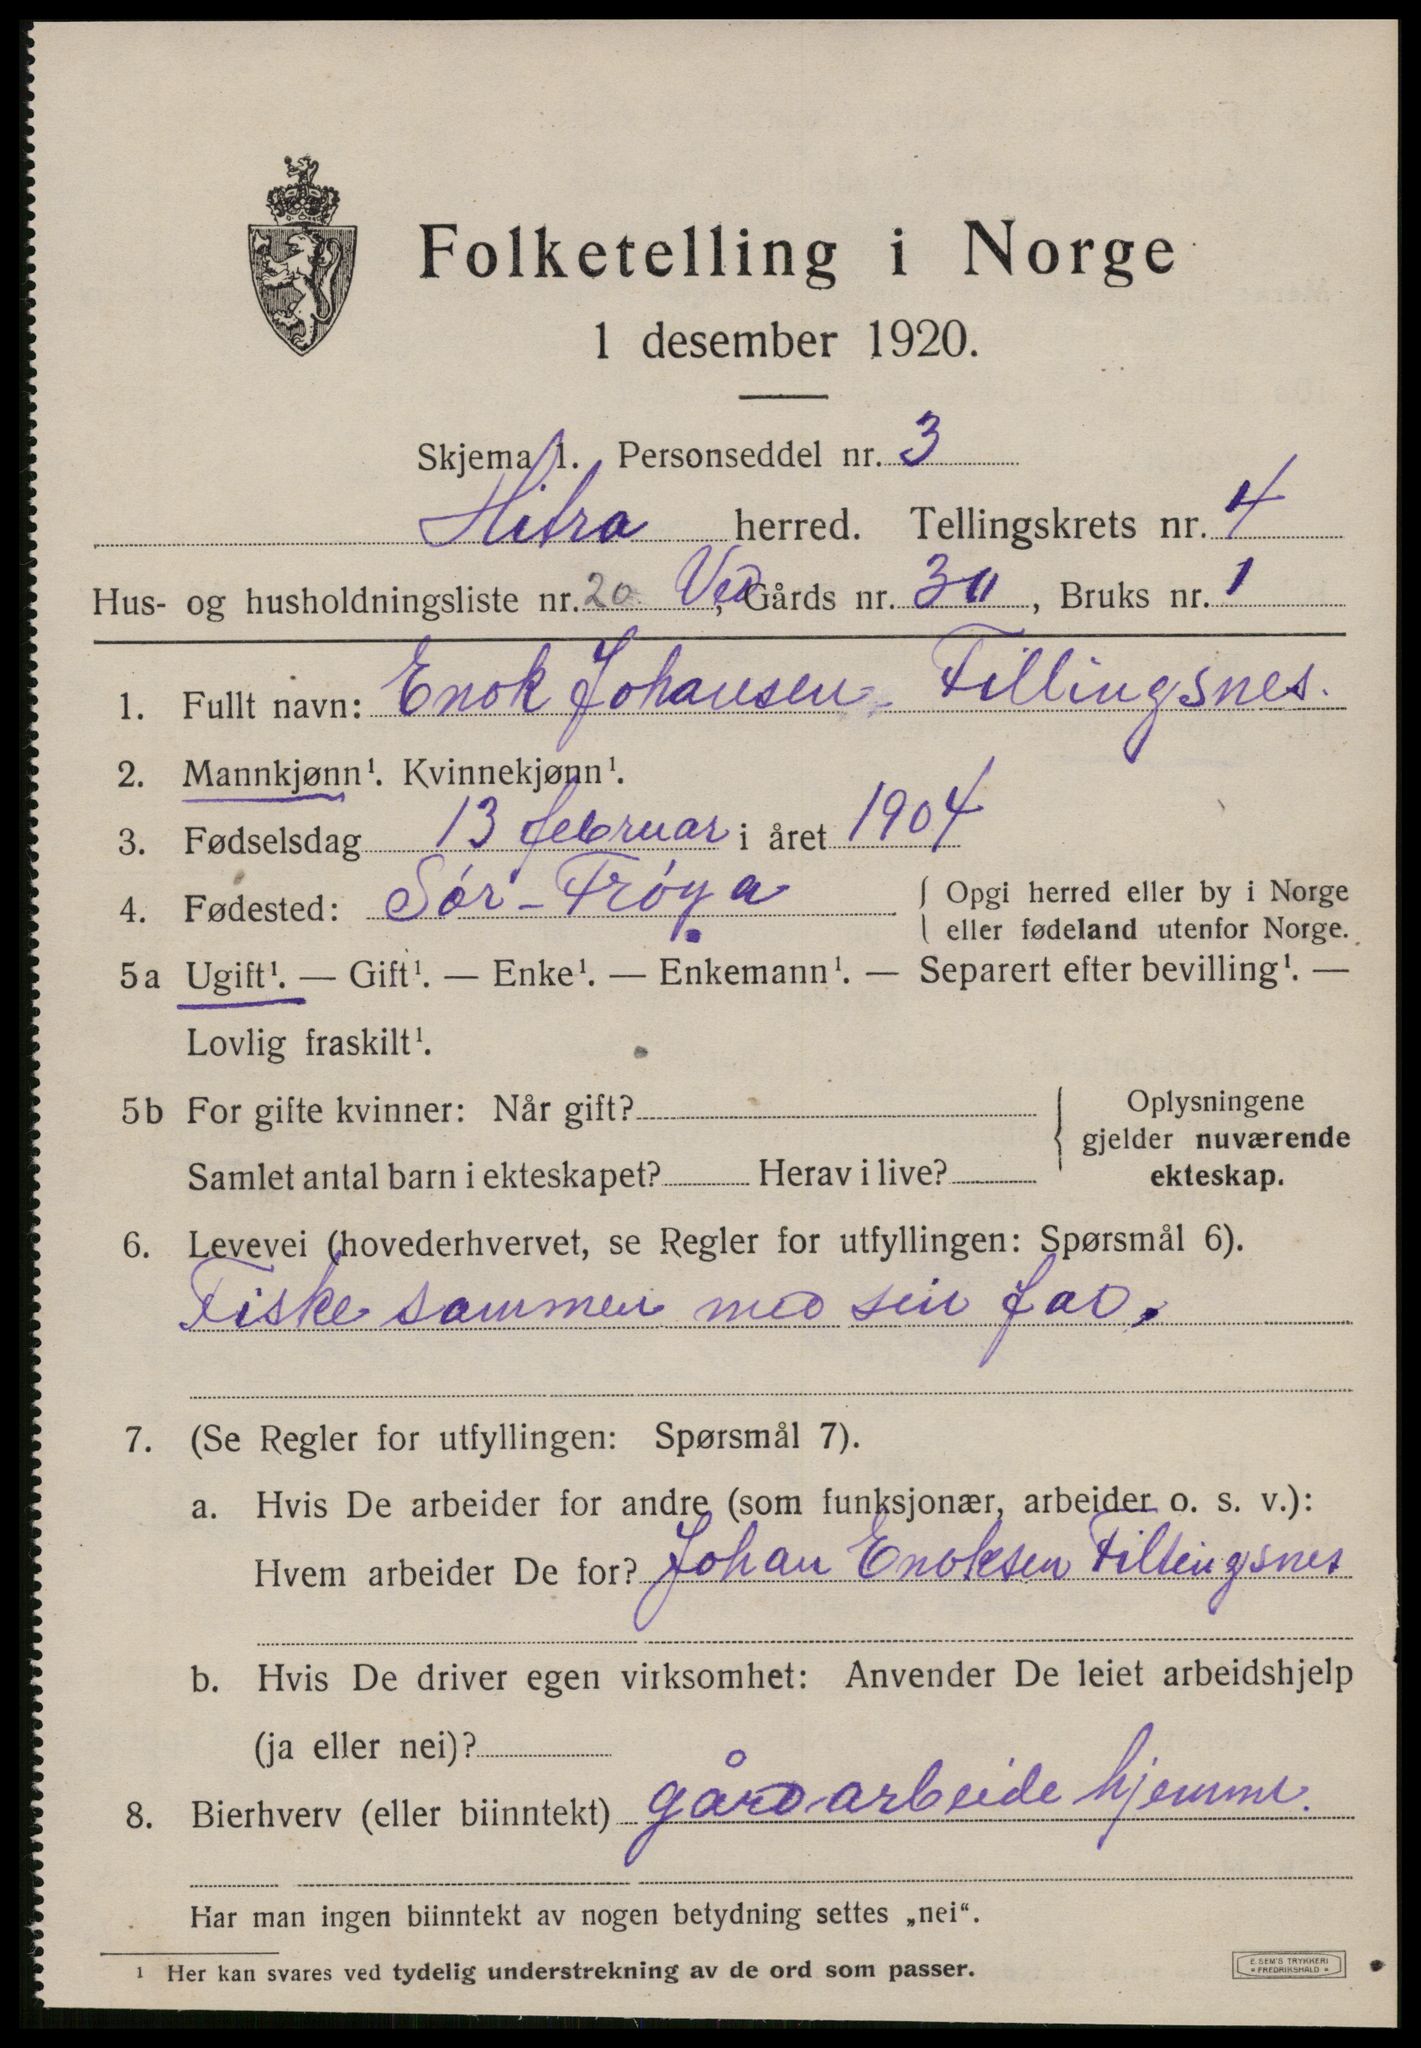 Folketelling i Norge
1 desember 1920.
Skjema 1. Personseddel nr. 3
Hitra herred. Tellingskrets nr. 4
Hus- og husholdningsliste nr. 20 Ved, Gårds nr. 30, Bruks nr. 1
1. Fullt navn: Enok Johansen Fillingsnes.
2. Mannkjønn¹. Kvinnekjønn¹.
3. Fødselsdag 13 februar i året 1904
4. Fødested: Sór-Fróya { Opgi herred eller by i Norge
eller fødeland utenfor Norge.
5a Ugift¹. — Gift¹. — Enke¹. — Enkemann¹. — Separert efter bevilling¹. —
Lovlig fraskilt¹.
5b For gifte kvinner: Når gift? { Oplysningene
gjelder nuværende
Samlet antal barn i ekteskapet? Herav i live? ekteskap.
6. Levevei (hovederhvervet, se Regler for utfyllingen: Spørsmål 6).
Fiske sammen med sin far.
7. (Se Regler for utfyllingen: Spørsmål 7).
a. Hvis De arbeider for andre (som funksjonær, arbeider o. s. v.):
Hvem arbeider De for? Johan Enoksen Fillingsnes
b. Hvis De driver egen virksomhet: Anvender De leiet arbeidshjelp
(ja eller nei)?
8. Bierhverv (eller biinntekt) gårdarbeide hjemme.
Har man ingen biinntekt av nogen betydning settes „nei“.
¹ Her kan svares ved tydelig understrekning av de ord som passer.
E. SEM'S TRYKKERI
• FREDRIKSHALD •